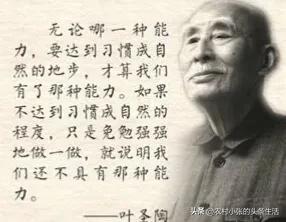 无论哪一种能
力，要达到习惯成自
然的地步，才算我们
有了那种能力。如果
不达到习惯成自然的
程度，只是免勉强强
地做一做，就说明我
们还不具有那种能
力。
——叶圣陶
头条 @农村小张的头条生活